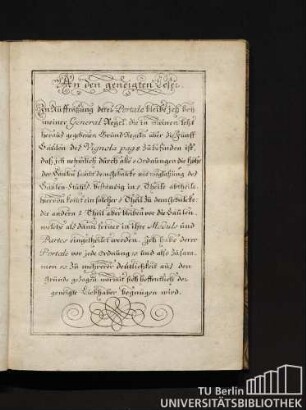 An den geneigten Leser.
In Auffreißung derer Portale bleibe ich bey
meiner General Regel, die in meinen letzt
heraus gegebenen Grund Regeln über die Fünff
Säulen des Vignola zubefinden ist,
daß ich nehmlich durch alle 5 Ordnungen die Höhe
der Säulen samt dem Gebälcke
Säulen-Stuhls beständig in 5 Theile abtheile.
hiervon komt ein solcher Theil zu dem Gebälcke:
die andern 4 Theil aber bleiben vor die Säulen,
welche als dann ferner in ihre Moduls und
Partes eingetheilet werden. Ich habe derer
Portale vor jede Ordnung 10 und also zusam-
men 50 zu mehrerer deutlichkeit aus dem
Grunde gezogen, wormit sich hoffentlich der
geneigte Liebhaber begnügen wird.
TU Berlin
UNIVERSITÄTSBIBLIOTHEK